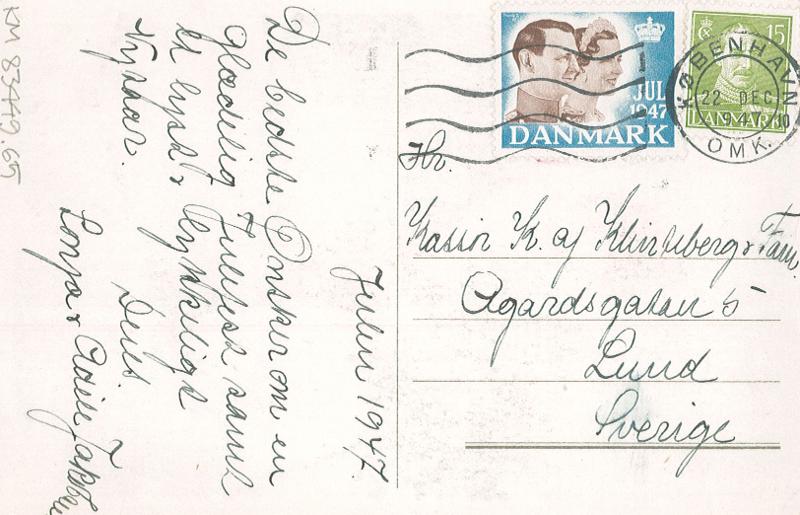 Julen 1947.
De bedste Ønsker om en
glædelig Julefest samt
et lyst & lykkeligt
Nytaar.
Deres
Sonja &
KM 83449.65
JUL
1947
DANMARK
15
DANMARK
KØBENHAVN
22 DEC
OMK.
Hr.
Kassör K. af Klinteberg & Fam.
Agardsgatan 5
Lund
Sverige